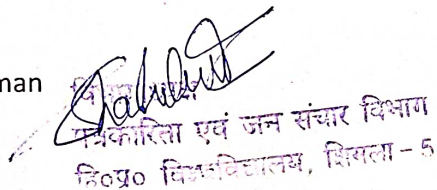 man
पत्रकारिता एवं जन संचार विभाग
हि०प्र० विश्वविद्यालय, शिमला - 5